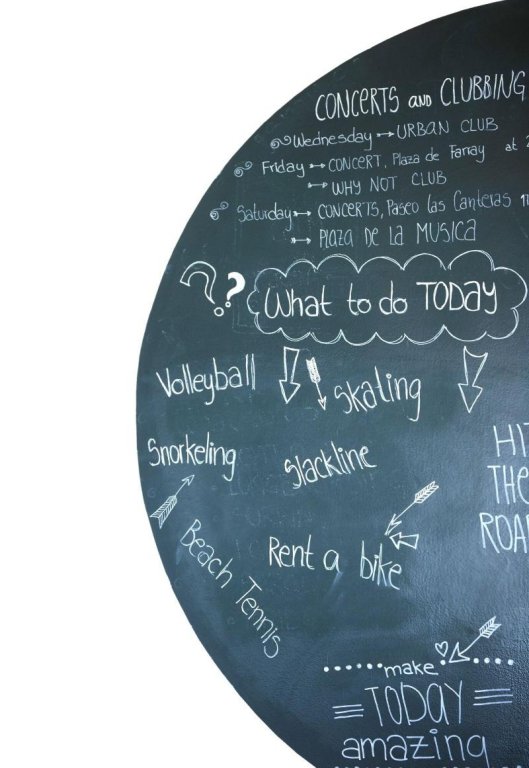 CONCERTS AND CLUBBING
Wednesday → URBAN CLUB
Friday → CONCERT, Plaza de Farray at
→ WHY NOT CLUB
Saturday → CONCERTS, Paseo las Canteras
→ PLAZA DE LA MUSICA
??
What to do TODAY
Volleyball
Skating
Snorkeling
Slackline
HIT
THE
ROA
Beach Tennis
Rent a bike
make
TODAY
amazing